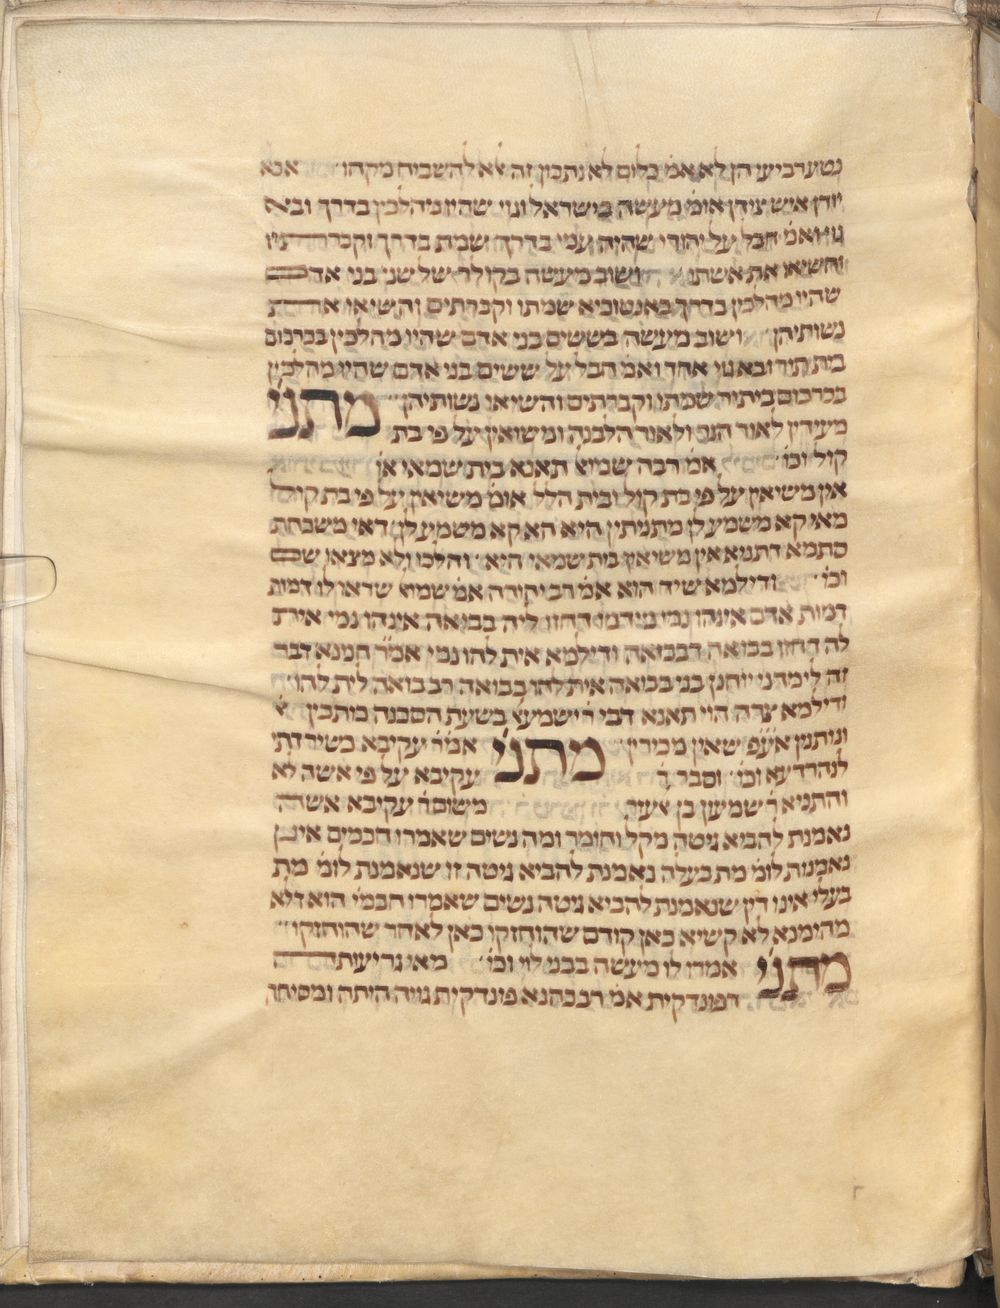 נטע רביעי הן לא אמ׳ כלום לא נתכון זה לא להשביח מקחו אבא
יודן איש צידן אומ׳ מעשה בישראל וגוי שהיו מהלכין בדרך ובא
גוי ואמ׳ חבל על יהודי שהיה עמי בדרך שמת בדרך וקברתיו
והשיאו את אשתו ושוב מעשה בקולר של שני בני אדם
שהיו מהלכין בדרך באנטוכיא שמתו וקברתים והשיאו את
נשותיהן ושוב מעשה בששים בני אדם שהיו מהלכין בכרכום
ביתתיר ובא גוי אחד ואמ׳ חבל על ששים בני אדם שהיו מהלכין
בכרכום ביתיר שמתו וקברתים והשיאו נשותיהן מתני׳
מעידין לאור הנר ולאור הלבנה ומשיאין על פי בת
קול וכו׳ אמ׳ רבה שמוא׳ תאנא בית שמאי או׳
אין משיאין על פי בת קול ובית הלל אומ׳ משיאין על פי בת קול
מאי קא משמע לן מתניתין היא הא קא משמע לן דאי משכחת
סתמא דתניא אין משיאין בית שמאי היא והלכו ולא מצאו שם
וכו׳ ודילמא שיד הוא אמ׳ רב יהודה אמ׳ שמוא׳ שראו לו דמות
דמות אדם אינהו נמי מידמו דחזו ליה בבואה אינהו נמי אית
לה דחזו בבואה דבבואה ודילמא אית להו נמי אמ׳ ר׳ חמנא דבר
זה לימדני יוחנן בני בבואה אית להו בבואה דבבואה לית להו
ודילמא צרה הוי תאנא דבי ר׳ ישמעא׳ בשעת הסכנה כותבין
ונותנין אע״פ שאין מכירין מתני׳ אמ׳ ר׳ עקיבא כשירדתי
לנהרדעא וכו׳ וסבר ר׳ עקיבא על פי אשה לא
והתניא ר׳ שמעון בן אעזר משום ר׳ עקיבא אשה
נאמנת להביא גיטה מקל וחומר ומה נשים שאמרו חכמים אינן
נאמנות לומ׳ מת בעלה נאמנת להביא גיטה זו שנאמנת לומ׳ מת
בעלי אינו דין שנאמנת להביא גיטה נשים שאמרו חכמי׳ הוא דלא
מהימנא לא קשיא כאן קודם שהוחזקו כאן לאחר שהוחזקו
מתני׳ אמרו לו מעשה בבני לוי וכו׳ מאי גריעותה
דפונדקית אמ׳ רב כהנא פונדקית גויה היתה ומסיחה